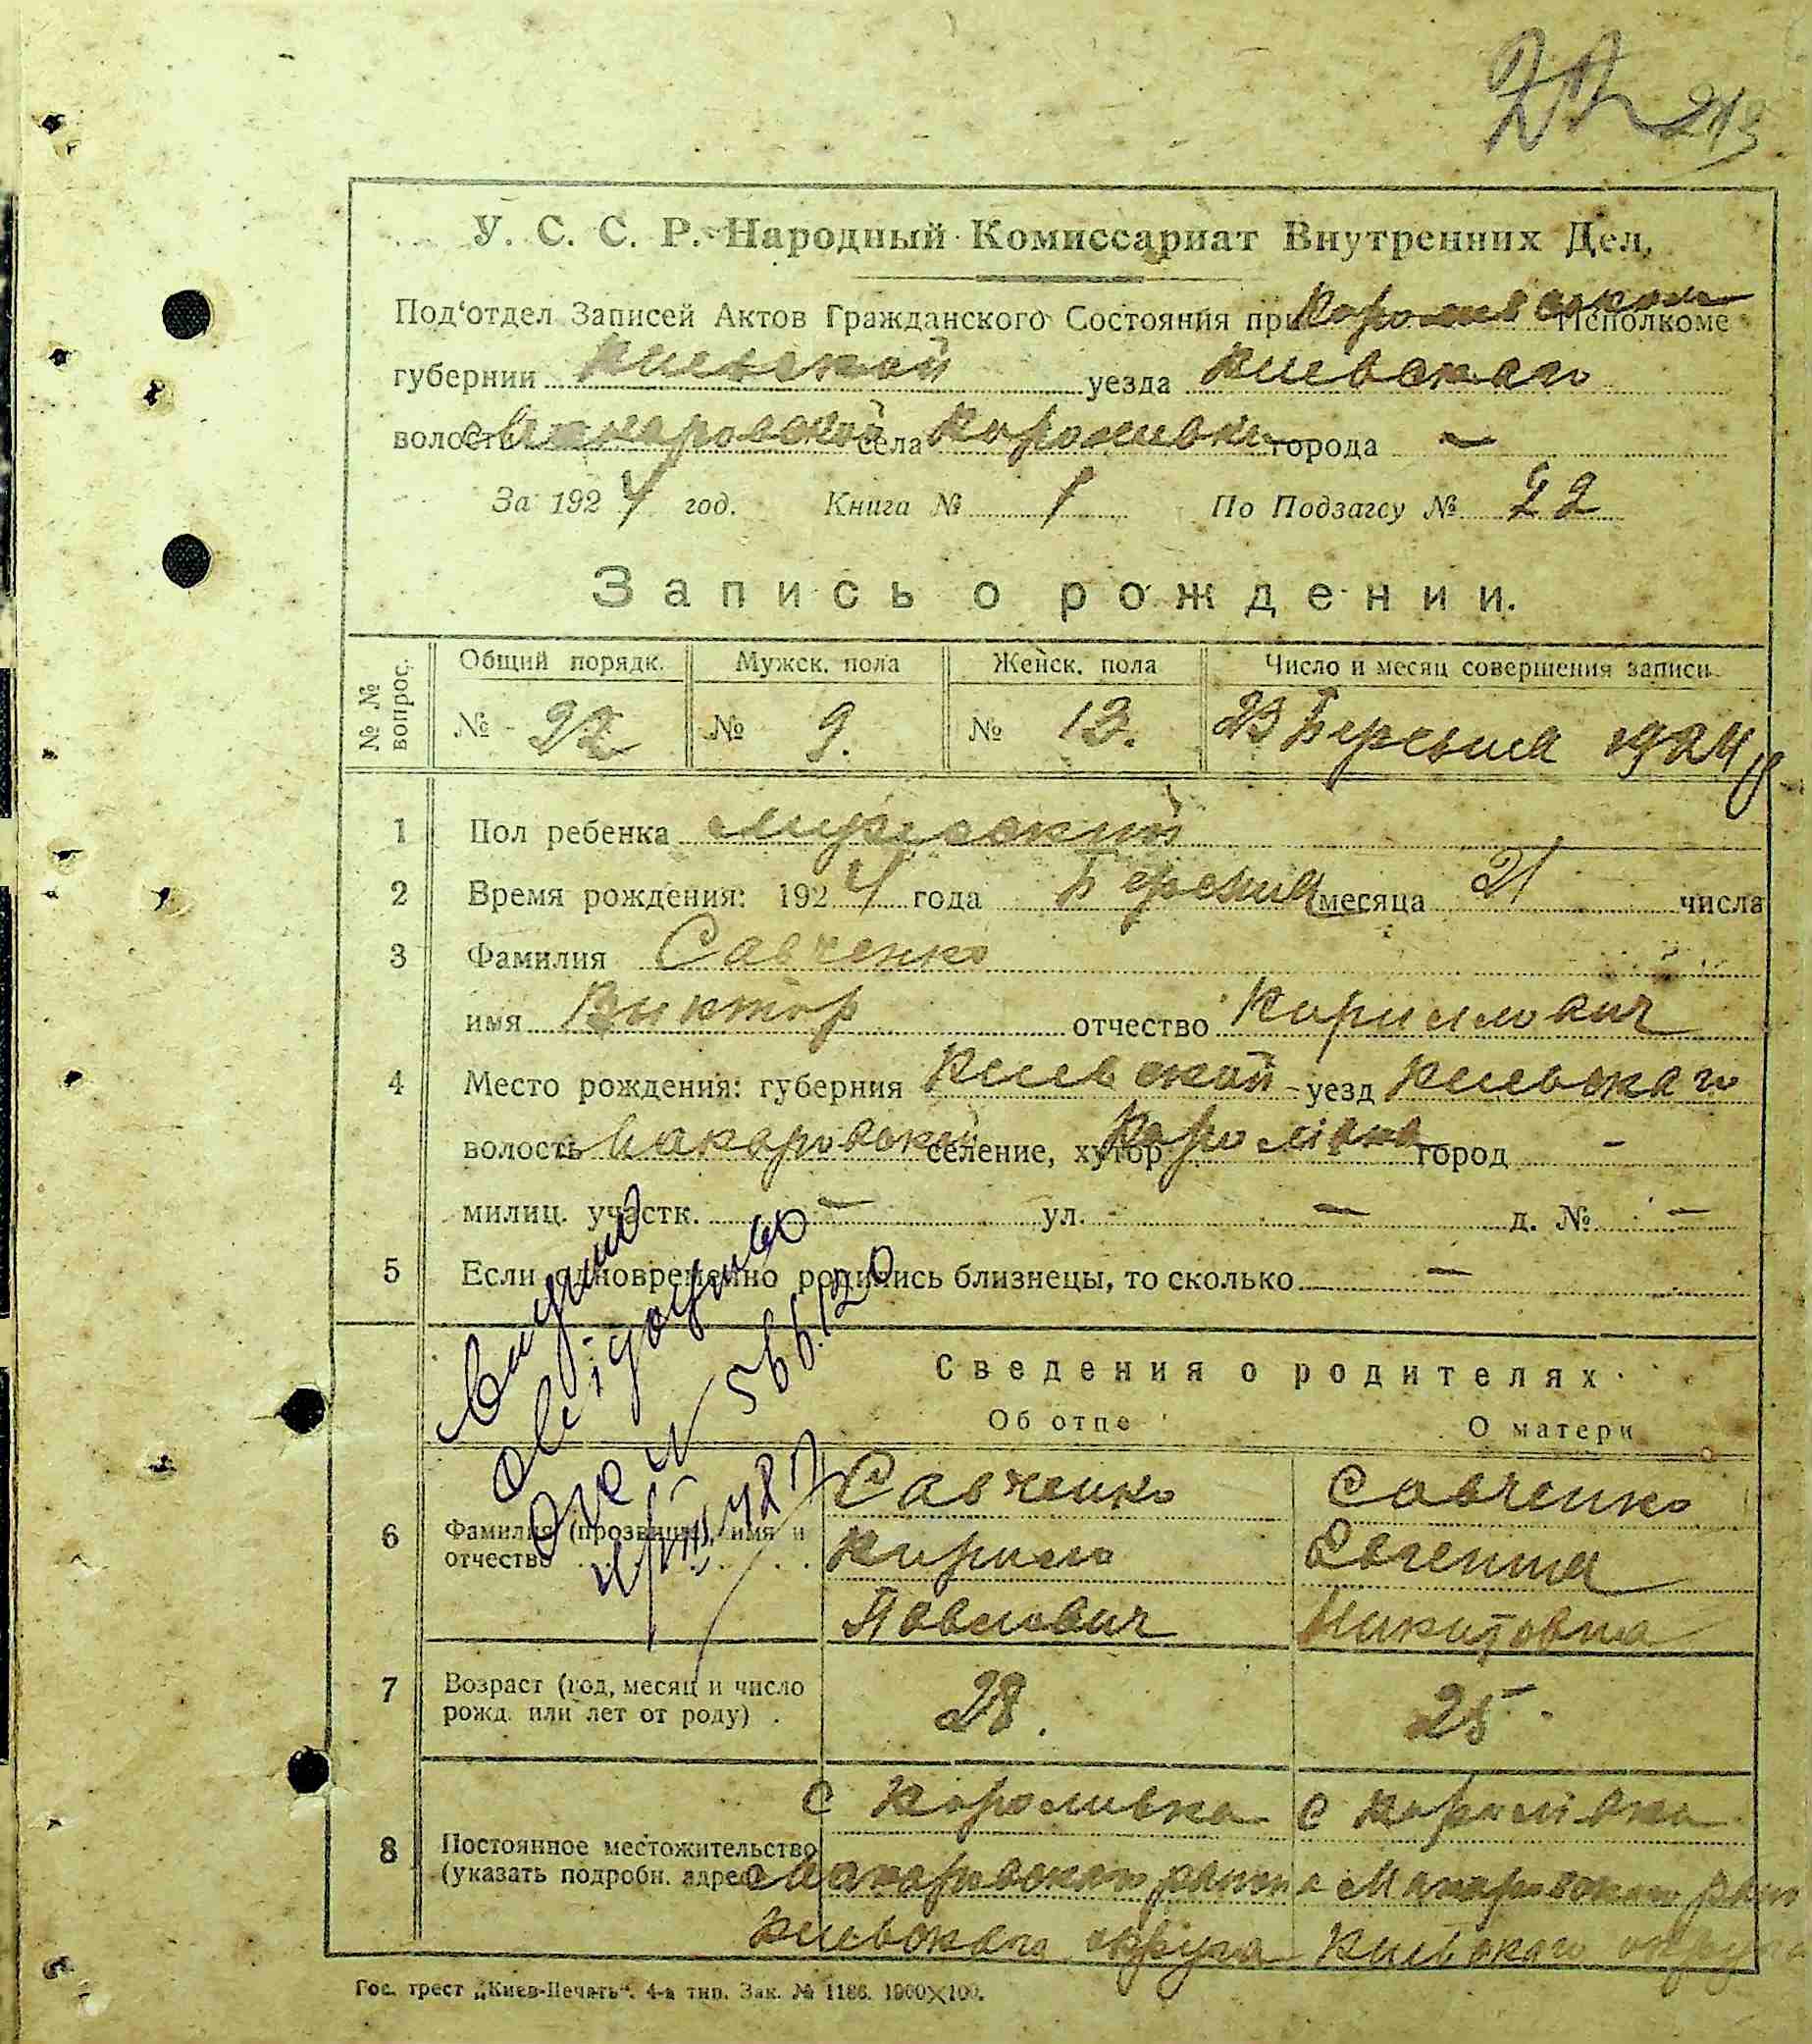 213
У. С. С. Р. Народный Комиссариат Внутренних Дел,
Под'отдел Записей Актов Гражданского Состояния при Исполкоме
губернии Киевской уезда Киевскаго
волости Макаровской села Короливки города —
За 1924 год. Книга № 1 По Подзагсу № 22
Запись о рождении.
№ № вопрос. Общий порядк. Мужск. пола Женск. пола Число и месяц совершения записи
№ 22 № 9. № 13. 23 Березня 1924 р
1 Пол ребенка мужеский
2 Время рождения: 1924 года Березня месяца 21 числа
3 Фамилия Савченко
имя Виктор отчество Кириллович
4 Место рождения: губерния Киевской уезд Киевскаго
волость Макаровской селение, хутор Королівка город —
милиц. участк. — ул. — д. № —
5 Если одновременно родились близнецы, то сколько —
Сведения о родителях
Об отце О матери
Савченко Савченко
6 Фамилия (прозвище), имя и Кирило Евгения
отчество Павлович Никитовна
7 Возраст (год, месяц и число
рожд. или лет от роду) . 28. 25.
с Короливка с Королівка
8 Постоянное местожительство
(указать подробн. адрес) Макаровскаго Макаровскаго
Киевскаго округа Киевскаго округа
Гос. трест „Киев-Печать“. 4-а тип. Зак. № 1186. 1000×100.